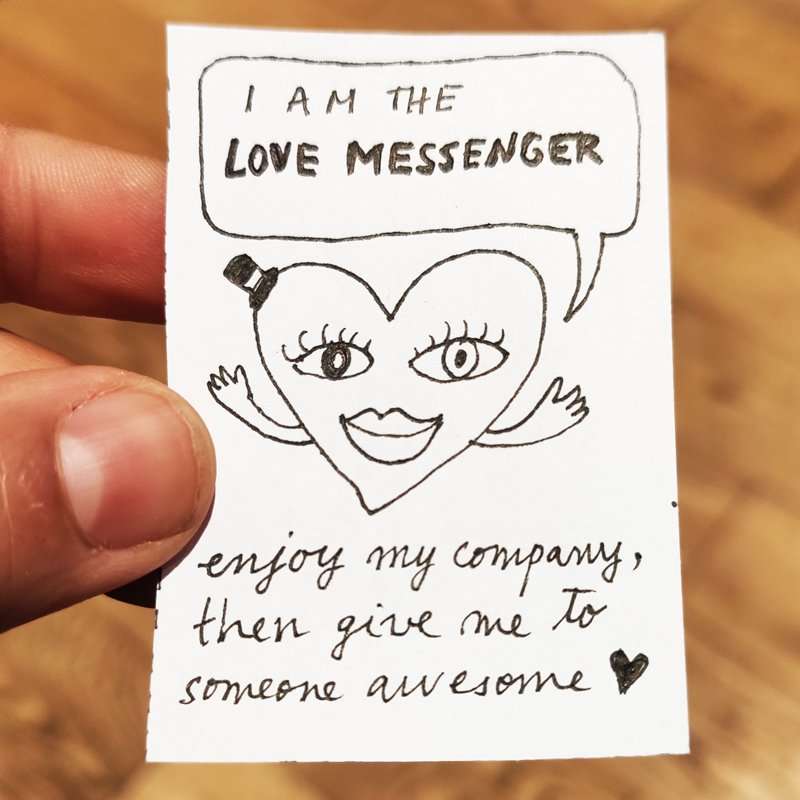 I AM THE
LOVE MESSENGER
enjoy my company,
then give me to
someone awesome ♥